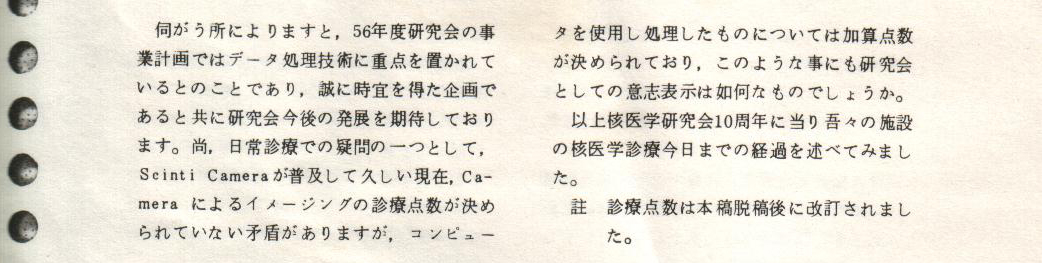 伺がう所によりますと，56年度研究会の事
業計画ではデータ処理技術に重点を置かれて
いるとのことであり，誠に時宜を得た企画で
あると共に研究会今後の発展を期待しており
ます。尚，日常診療での疑問の一つとして，
Scinti Cameraが普及して久しい現在，Ca-
mera によるイメージングの診療点数が決め
られていない矛盾がありますが，コンピュー
タを使用し処理したものについては加算点数
が決められており，このような事にも研究会
としての意志表示は如何なものでしょうか。
以上核医学研究会10周年に当り吾々の施設
の核医学診療今日までの経過を述べてみまし
た。
註　診療点数は本稿脱稿後に改訂されまし
た。